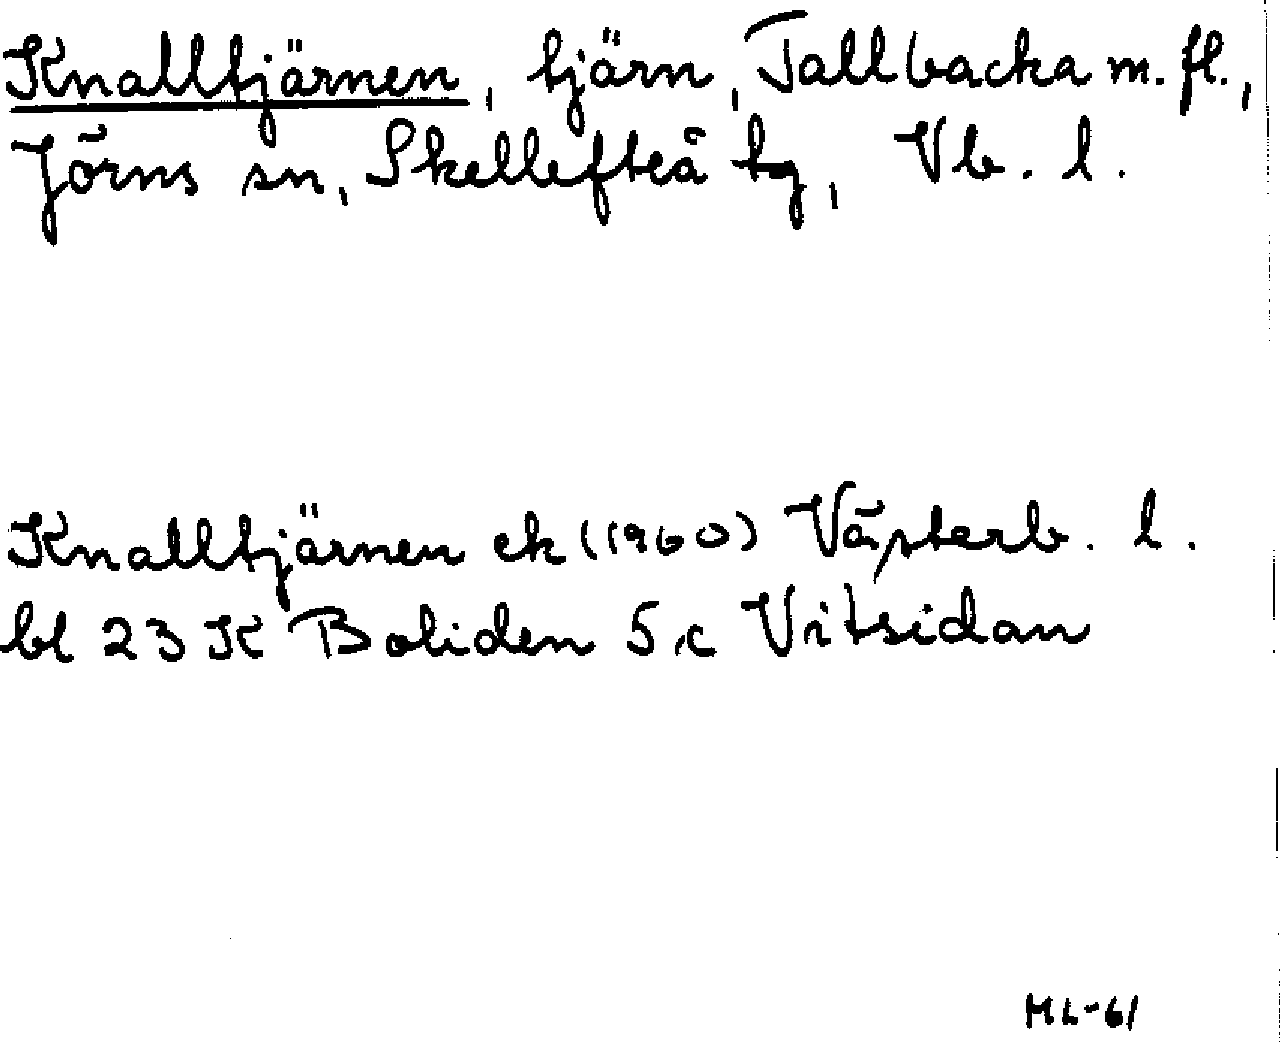 Knalltjärnen, tjärn, Tallbacka m. fl.,
Jörns sn, Skellefteå tg, Vb. l.
Knalltjärnen ek (1960) Västerb. l.
bl 23 K Boliden 5 c Vitsidan
ML-61